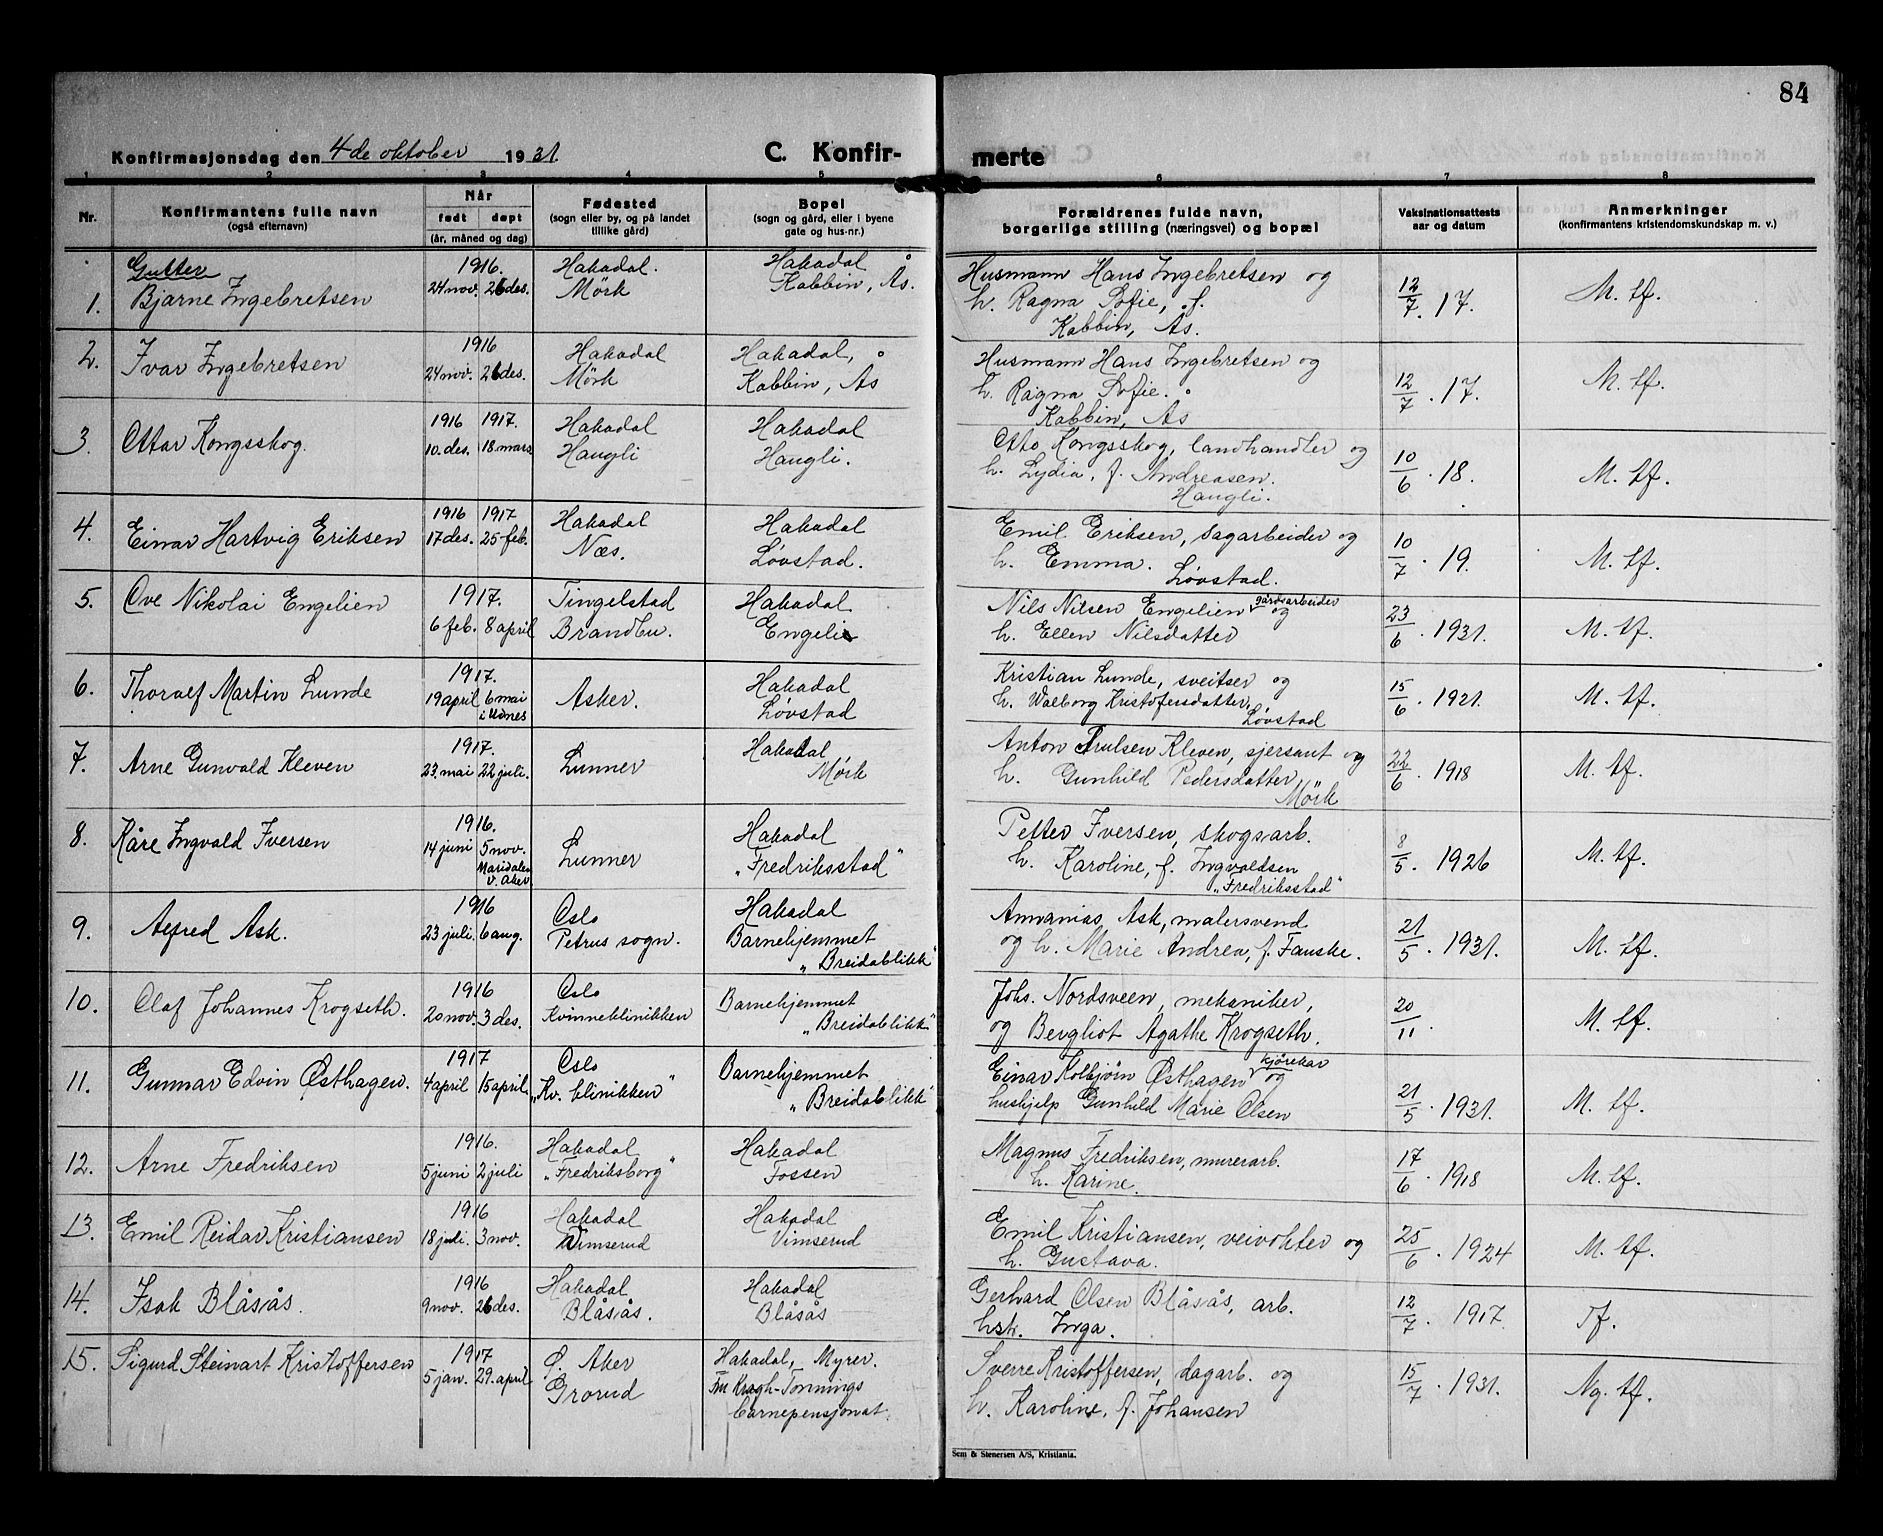 84
Konfirmasjonsdag den 4de oktober 1931.
C. Konfir-
merte
1 2 3 4 5 6 7 8
Nr.
Konfirmantens fulle navn
(også efternavn)
Når
født døpt
(år, måned og dag)
Fødested
(sogn eller by, og på landet
tillike gård)
Bopel
(sogn og gård, eller i byene
gate og hus-nr.)
Forældrenes fulde navn,
borgerlige stilling (næringsvei) og bopæl
Vaksinationsattests
aar og datum
Anmerkninger
(konfirmantens kristendomskundskap m. v.)
Gutter
1. Bjarne Ingebretsen
1916.
24 nov. 26 des.
Hakadal.
Mørk
Hakadal
Kabbin, Ås.
Husmann Hans Ingebretsen og
h. Ragna Sofie, f.
Kabbin, Ås.
12/7. 17.
M. tf.
2. Ivar Ingebretsen
1916
24 nov. 26 des.
Hakadal
Mörk
Hakadal,
Kabbin, Ås
Husmann Hans Ingebretsen og
h. Ragna Sofie.
Kabbin, Ås
12/7. 17.
M. tf.
3. Ottar Kongsskog.
1916 1917.
10. des. 18. mars
Hakadal
Haugli
Hakadal
Haugli.
Otto Kongsskog, landhandler og
h. Lydia, f. Andreasen.
Haugli.
10/6. 18.
M. tf.
4. Einar Hartvig Eriksen
1916 1917
17 des. 25 feb.
Hakadal
Næs.
Hakadal
Løvstad.
Emil Eriksen, sagarbeider og
h. Emma. Løvstad.
10/7. 19.
M. tf.
5. Ove Nikolai Engelien
1917.
6 feb. 8 april
Tingelstad
Brandbu.
Hakadal
Engeli
Nils Nilsen Engelien gårdsarbeider og
h. Ellen Nilsdatter
23/6. 1931.
M. tf.
6. Thoralf Martin Lunde
1917.
19 april 6 mai
i Udnes
Asker.
Hakadal
Løvstad
Kristian Lunde, sveitser og
h. Walborg Kristofersdatter,
Løvstad
15/6. 1921.
M. tf.
7. Arne Gunvald Kleven
1917.
23. mai 22 juli.
Lunner
Hakadal
Mørk
Anton Trulsen Kleven, sjersant og
h. Gunhild Pedersdatter
Mörk
22/6. 1918
M. tf.
8. Kåre Ingvald Iversen
1916.
14 juni 5 nov.
Maridalen
v. Aker
Lunner
Hakadal
„Fredriksstad"
Petter Iversen, skogsarb.
h. Karoline, f. Ingvaldsen
„Fredriksstad"
8/5. 1926
M. tf.
9. Alfred Ask.
1916
23 juli. 6 aug.
Oslo
Petrus sogn.
Hakadal
Barnehjemmet
„Breidablikk"
Annanias Ask, malersvend
og h. Marie Andrea, f. Fauske.
21/5. 1931.
M. tf.
10. Olaf Johannes Krogseth.
1916
20 nov. 3 des.
Oslo
Kvinneklinikken
Barnehjemmet
„Breidablikk"
Johs. Nordsveen, mekaniker,
og Bergliot Agathe Krogseth.
20/11.
M. tf.
11. Gunnar Edvin Østhagen.
1917
4 april 15 april
Oslo
„Kv. klinikken"
Barnehjemmet
„Breidablikk"
Einar Kolbjörn Østhagen kjørekar og
hushjelp Gunhild Marie Olsen
21/5. 1931.
M. tf.
12. Arne Fredriksen
1916.
5 juni 2 juli
Hakadal
„Fredriksborg"
Hakadal
Fossen
Magnus Fredriksen, murerarb.
h. Karine.
17/6. 1918
M. tf.
13. Emil Reidar Kristiansen
1916
18 juli. 3 nov.
Hakadal
Vimserud
Hakadal
Vimserud
Emil Kristiansen, veivokter og
h. Gustava.
25/6. 1924
M. tf.
14. Isak Blåsås.
1916
9 nov. 26 des.
Hakadal
Blåsås.
Hakadal
Blåsås
Gerhard Olsen Blåsås, arb.
hstr. Inga.
12/7. 1917.
Tf.
15. Sigurd Steinart Kristoffersen
1917
5 jan. 29. april
Ø. Aker
Grorud
Hakadal, Myrer.
Fru Kragh-Tønnings
barnepensjonat.
Sverre Kristoffersen, dagarb. og
h. Karoline, f. Johansen
15/7. 1931.
Ng. tf.
Sem & Stenersen A/S, Kristiania.